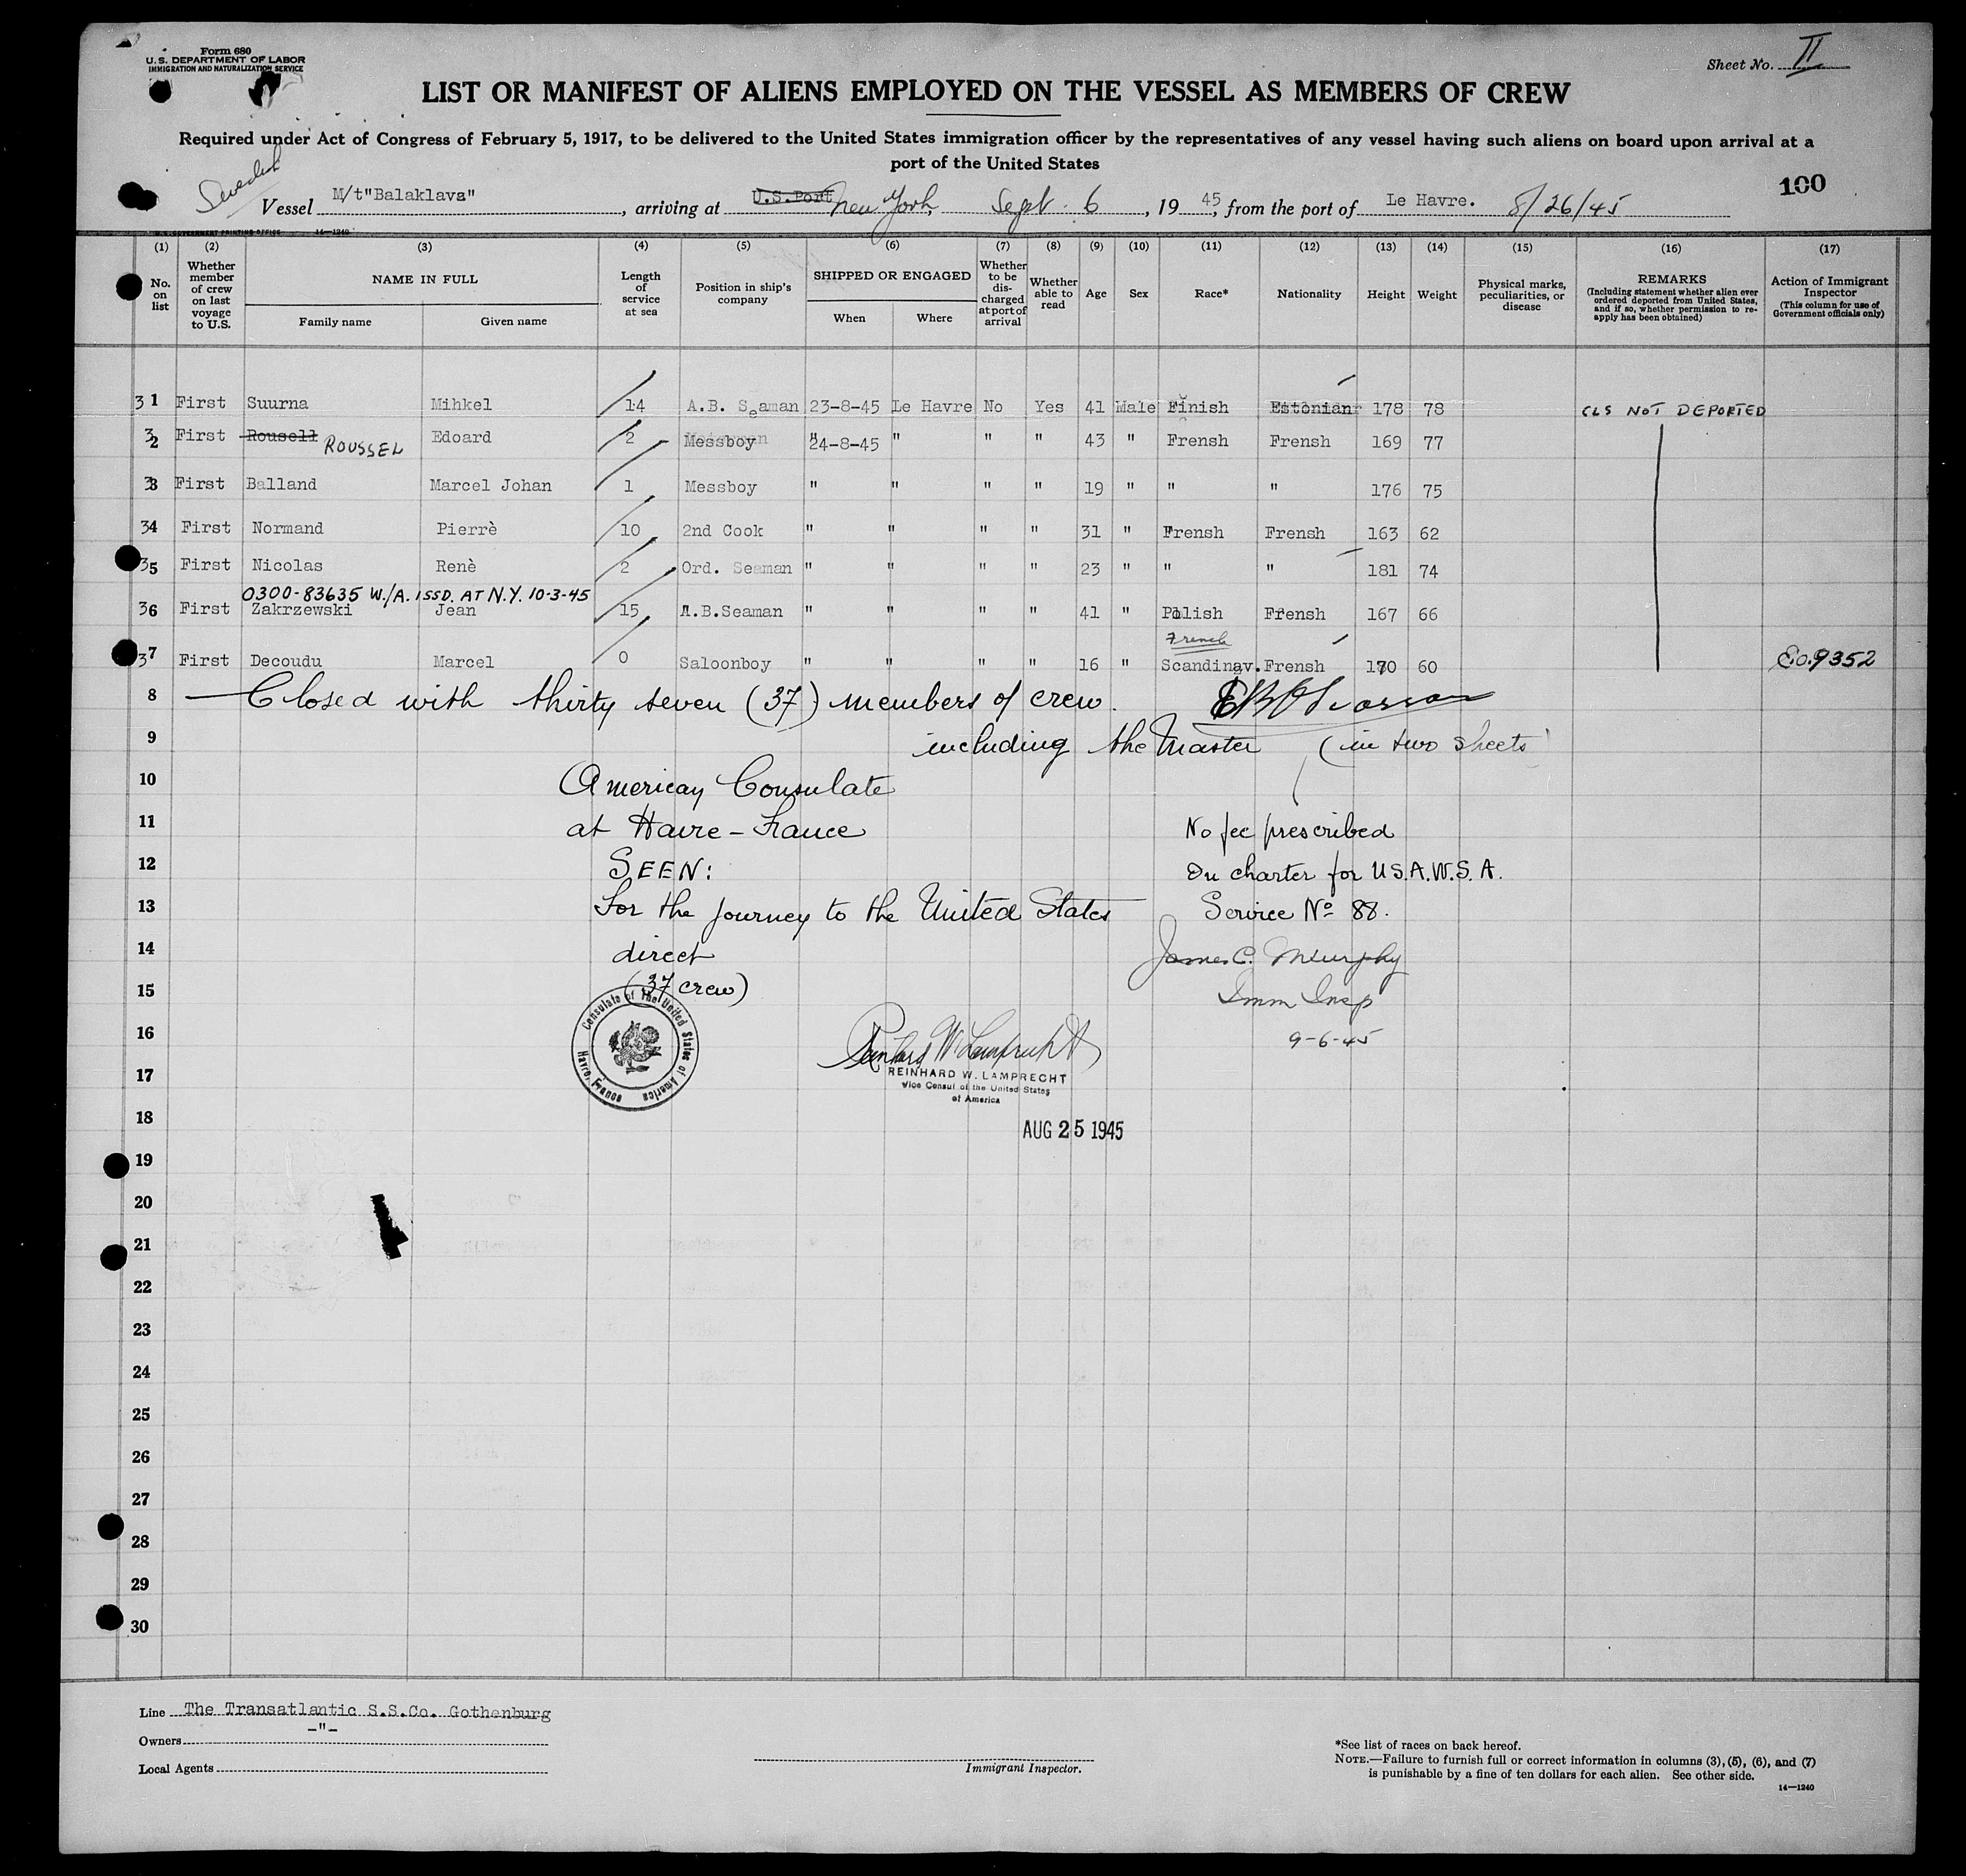 Form 680
U. S. DEPARTMENT OF LABOR
IMMIGRATION AND NATURALIZATION SERVICE
Sheet No. II
LIST OR MANIFEST OF ALIENS EMPLOYED ON THE VESSEL AS MEMBERS OF CREW
Required under Act of Congress of February 5, 1917, to be delivered to the United States immigration officer by the representatives of any vessel having such aliens on board upon arrival at a
port of the United States
100
Swedish
Vessel M/t"Balaklava", arriving at U.S.Port New York, Sept. 6, 1945, from the port of Le Havre. 8/26/45
14—1240
(1) (2) (3) (4) (5) (6) (7) (8) (9) (10) (11) (12) (13) (14) (15) (16) (17)
No. on list
Whether member of crew on last voyage to U.S.
NAME IN FULL
Family name
Given name
Length of service at sea
Position in ship's company
SHIPPED OR ENGAGED
When
Where
Whether to be discharged at port of arrival
Whether able to read
Age
Sex
Race*
Nationality
Height
Weight
Physical marks, peculiarities, or disease
REMARKS
(Including statement whether alien ever ordered deported from United States, and if so, whether permission to re-apply has been obtained)
Action of Immigrant Inspector
(This column for use of Government officials only)
31 First Suurna Mihkel 14 A.B. Seaman 23-8-45 Le Havre No Yes 41 Male Finish Estonian 178 78 CLS NOT DEPORTED
32 First Rousell ROUSSEL Edoard 2 Messboy 24-8-45 " " " 43 " Frensh Frensh 169 77
33 First Balland Marcel Johan 1 Messboy " " " " 19 " " " 176 75
34 First Normand Pierrè 10 2nd Cook " " " " 31 " Frensh Frensh 163 62
35 First Nicolas Renè 2 Ord. Seaman " " " " 23 " " " 181 74
0300-83635 W./A. ISSD. AT N.Y. 10-3-45
36 First Zakrzewski Jean 15 A.B.Seaman " " " " 41 " Polish Frensh 167 66
French
37 First Decoudu Marcel 0 Saloonboy " " " " 16 " Scandinav. Frensh 170 60 E.O. 9352
8 Closed with thirty seven (37) members of crew.
9 including the Master (in two sheets
10 American Consulate
11 at Havre - France No fee prescribed
12 SEEN: On charter for U.S.A.W.S.A.
13 For the journey to the United States Service No 88.
14 direct James C. Murphy
15 (37 crew) Imm Insp
16 9-6-45
Consulate of the United States of America
Havre, France
Reinhard W. Lamprecht
17 REINHARD W. LAMPRECHT
Vice Consul of the United States
of America
18 AUG 25 1945
19
20
21
22
23
24
25
26
27
28
29
30
Line The Transatlantic S.S.Co. Gothenburg
Owners -"-
Local Agents
Immigrant Inspector.
*See list of races on back hereof.
NOTE.—Failure to furnish full or correct information in columns (3), (5), (6), and (7)
is punishable by a fine of ten dollars for each alien. See other side.
14—1240